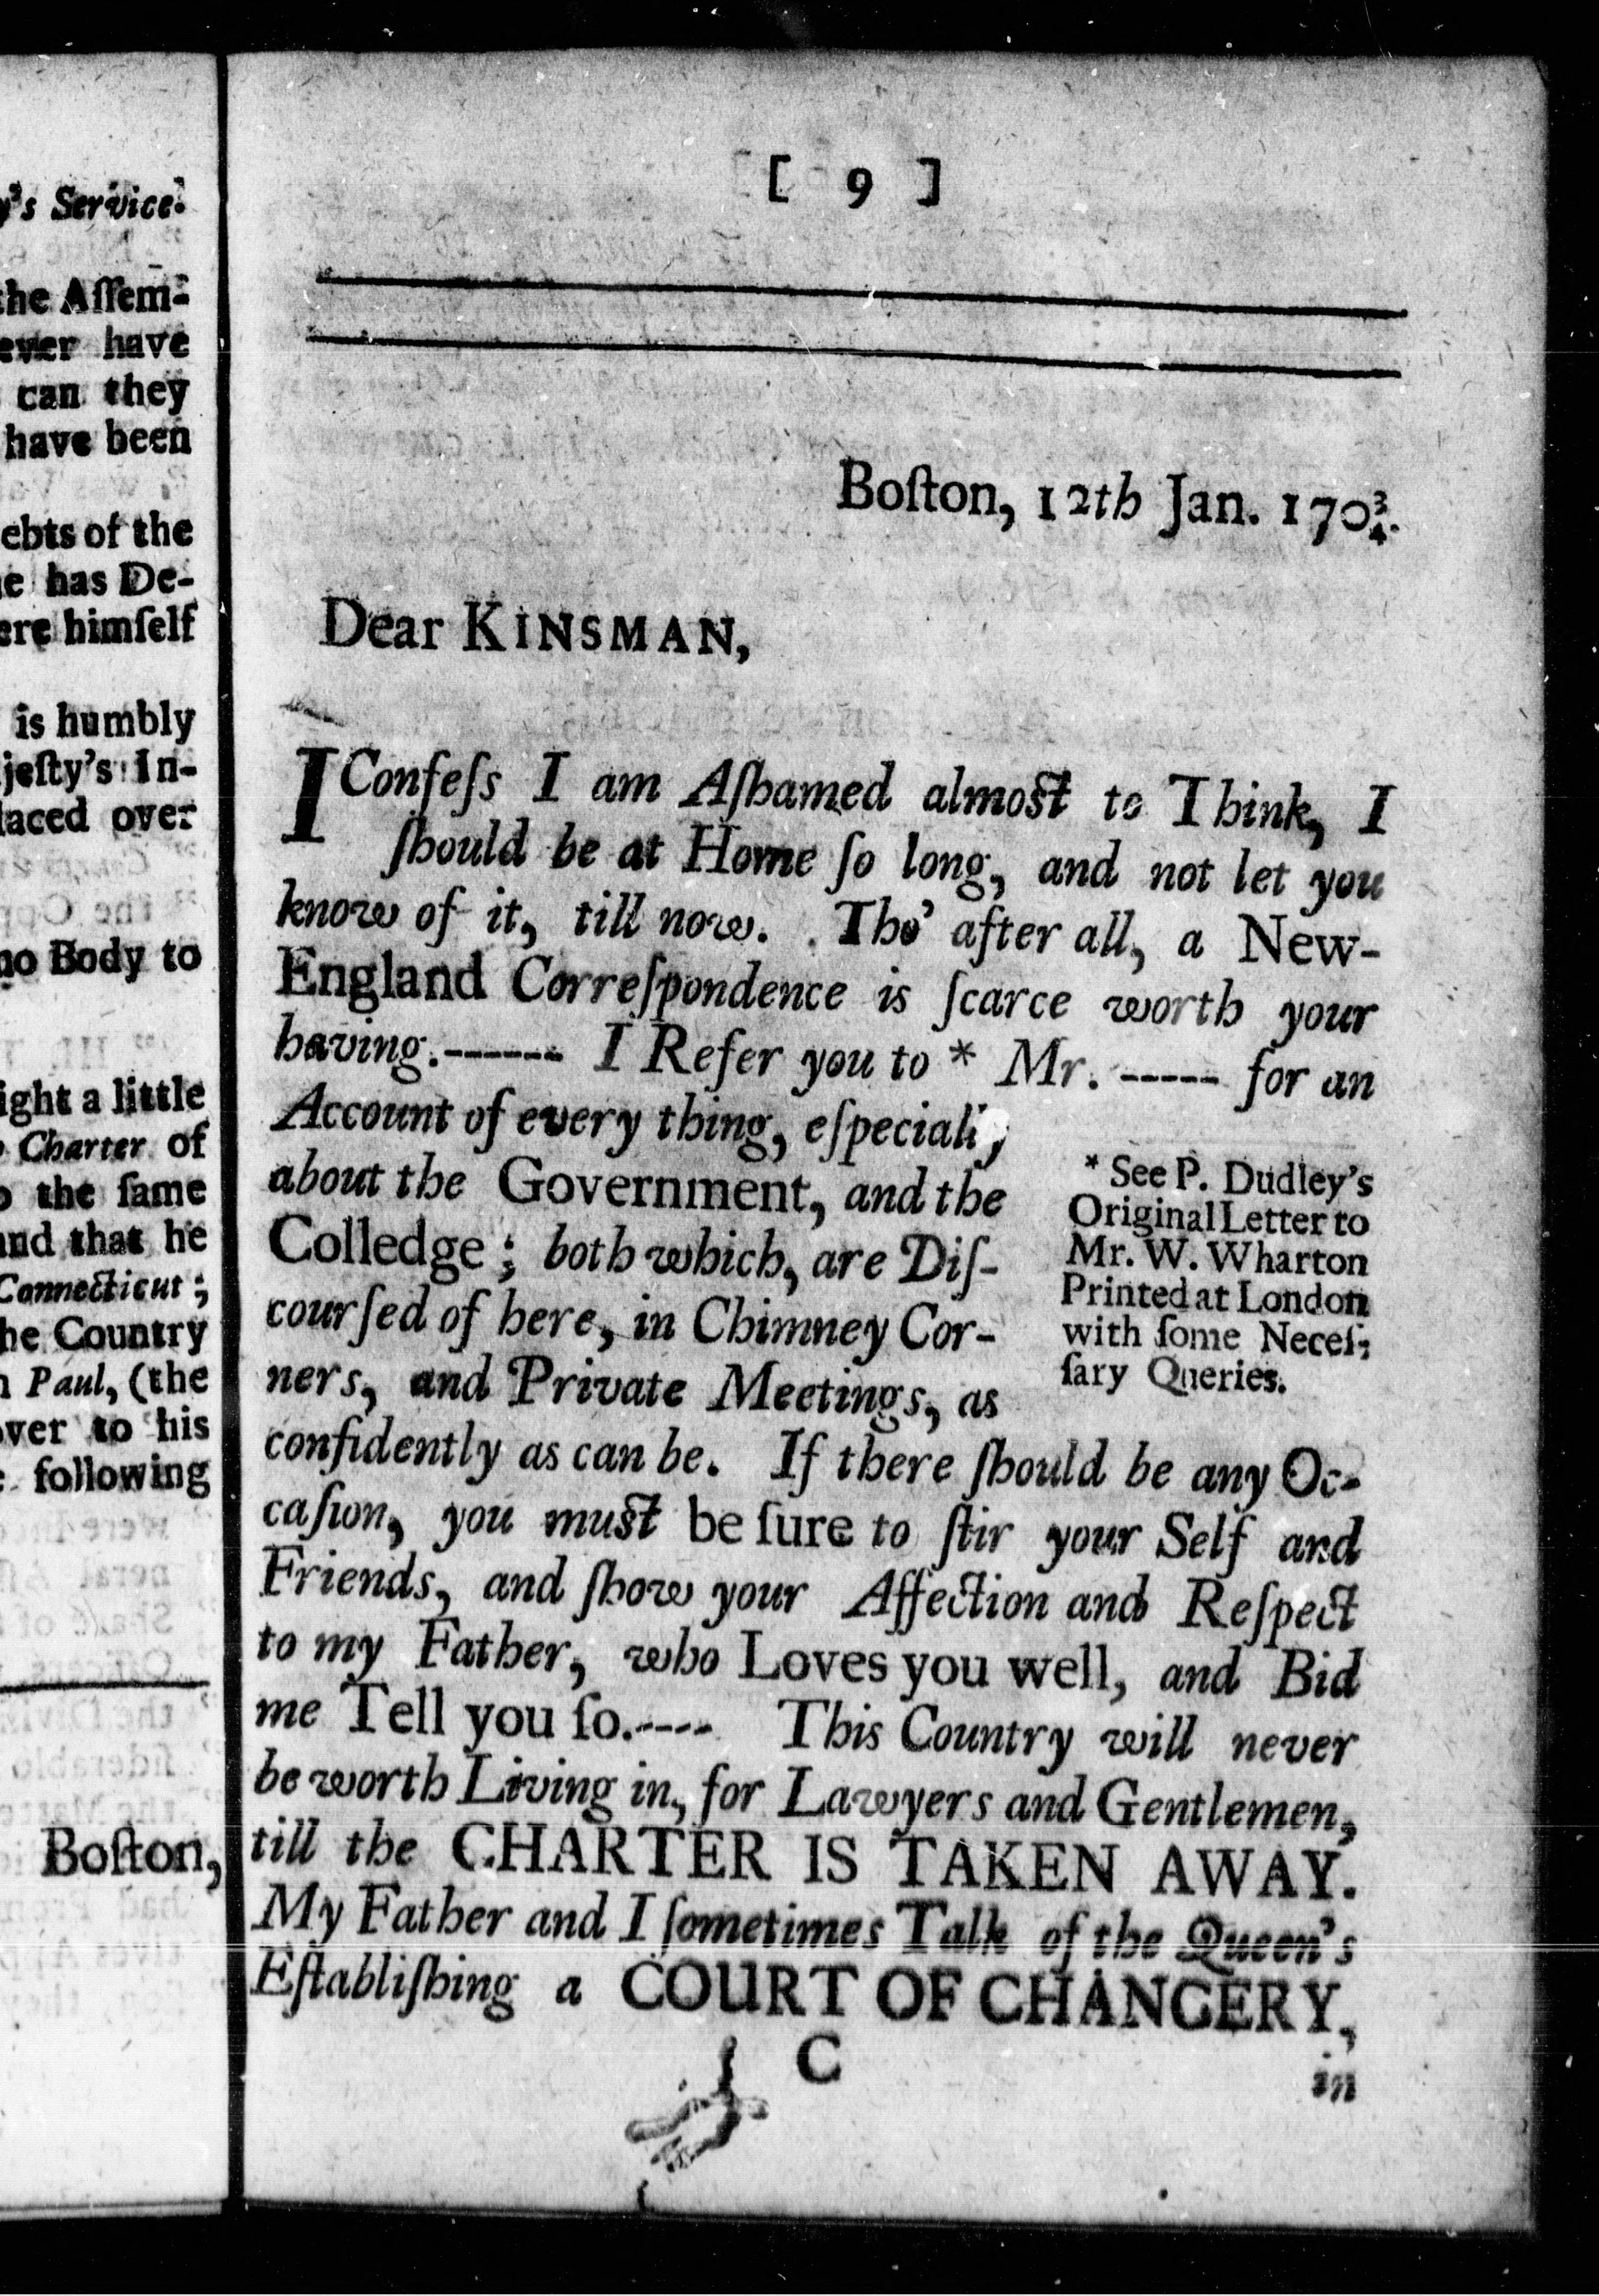 y's Service.
the Aſſem-
ever have
can they
have been
ebts of the
e has De-
ere himſelf
is humbly
jeſty's In-
laced over
no Body to
ight a little
Charter of
the ſame
and that he
Connecticut ;
he Country
Paul, (the
over to his
following
Boſton,
[ 9 ]
Boſton, 12th Jan. 170¾.
Dear KINSMAN,
I Confeſs I am Aſhamed almoſt to Think, I
ſhould be at Home ſo long, and not let you
know of it, till now. Tho' after all, a New-
England Correſpondence is ſcarce worth your
having.------ I Refer you to * Mr. ----- for an
Account of every thing, eſpecially
about the Government, and the
Colledge ; both which, are Diſ-
courſed of here, in Chimney Cor-
ners, and Private Meetings, as
confidently as can be. If there ſhould be any Oc-
caſion, you muſt be ſure to ſtir your Self and
Friends, and ſhow your Affection and Reſpect
to my Father, who Loves you well, and Bid
me Tell you ſo.---- This Country will never
be worth Living in, for Lawyers and Gentlemen,
till the CHARTER IS TAKEN AWAY.
My Father and I ſometimes Talk of the Queen's
Eſtabliſhing a COURT OF CHANCERY,
C
in
* See P. Dudley's
Original Letter to
Mr. W. Wharton
Printed at London
with ſome Neceſ-
ſary Queries.